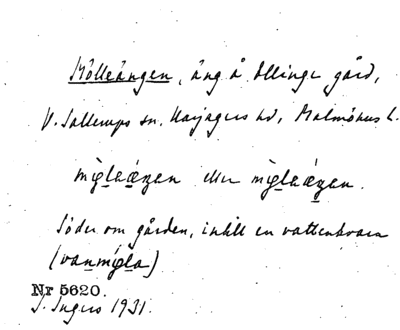 Mölleängen, äng å Ellinge gård,
V. Sallerups sn. Harjagers hd, Malmöhus l.
eller
Söder om gården, intill en vattenkvarn
Nr 5620.
S. Ingers 1931.